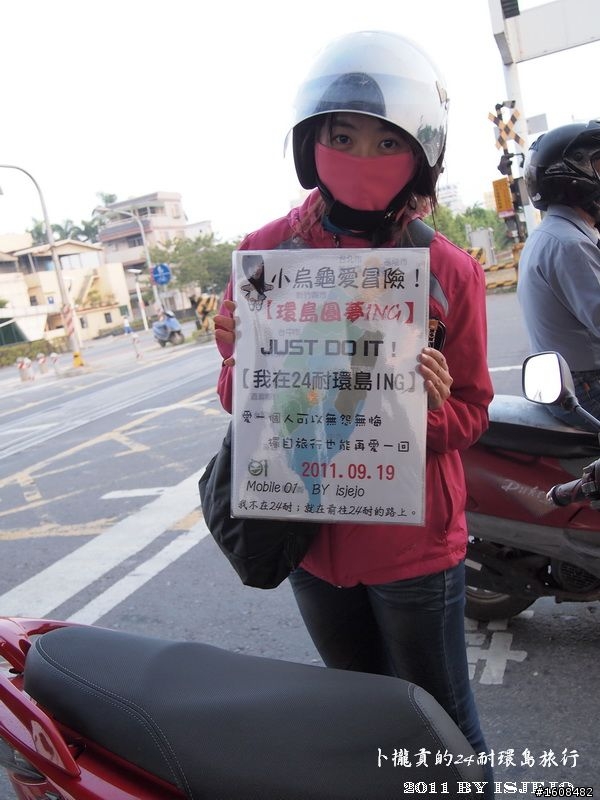 小烏龜愛冒險！
【環島圓夢ING】
台中市
JUST DO IT！
【我在24耐環島ING】
愛一個人可以無怨無悔
獨自旅行也能再愛一回
2011.09.19
Mobile 01 BY isjejo
我不在24耐；就在前往24耐的路上。
卜攏貢的24耐環島旅行
2011 BY ISJEJO
#1608482